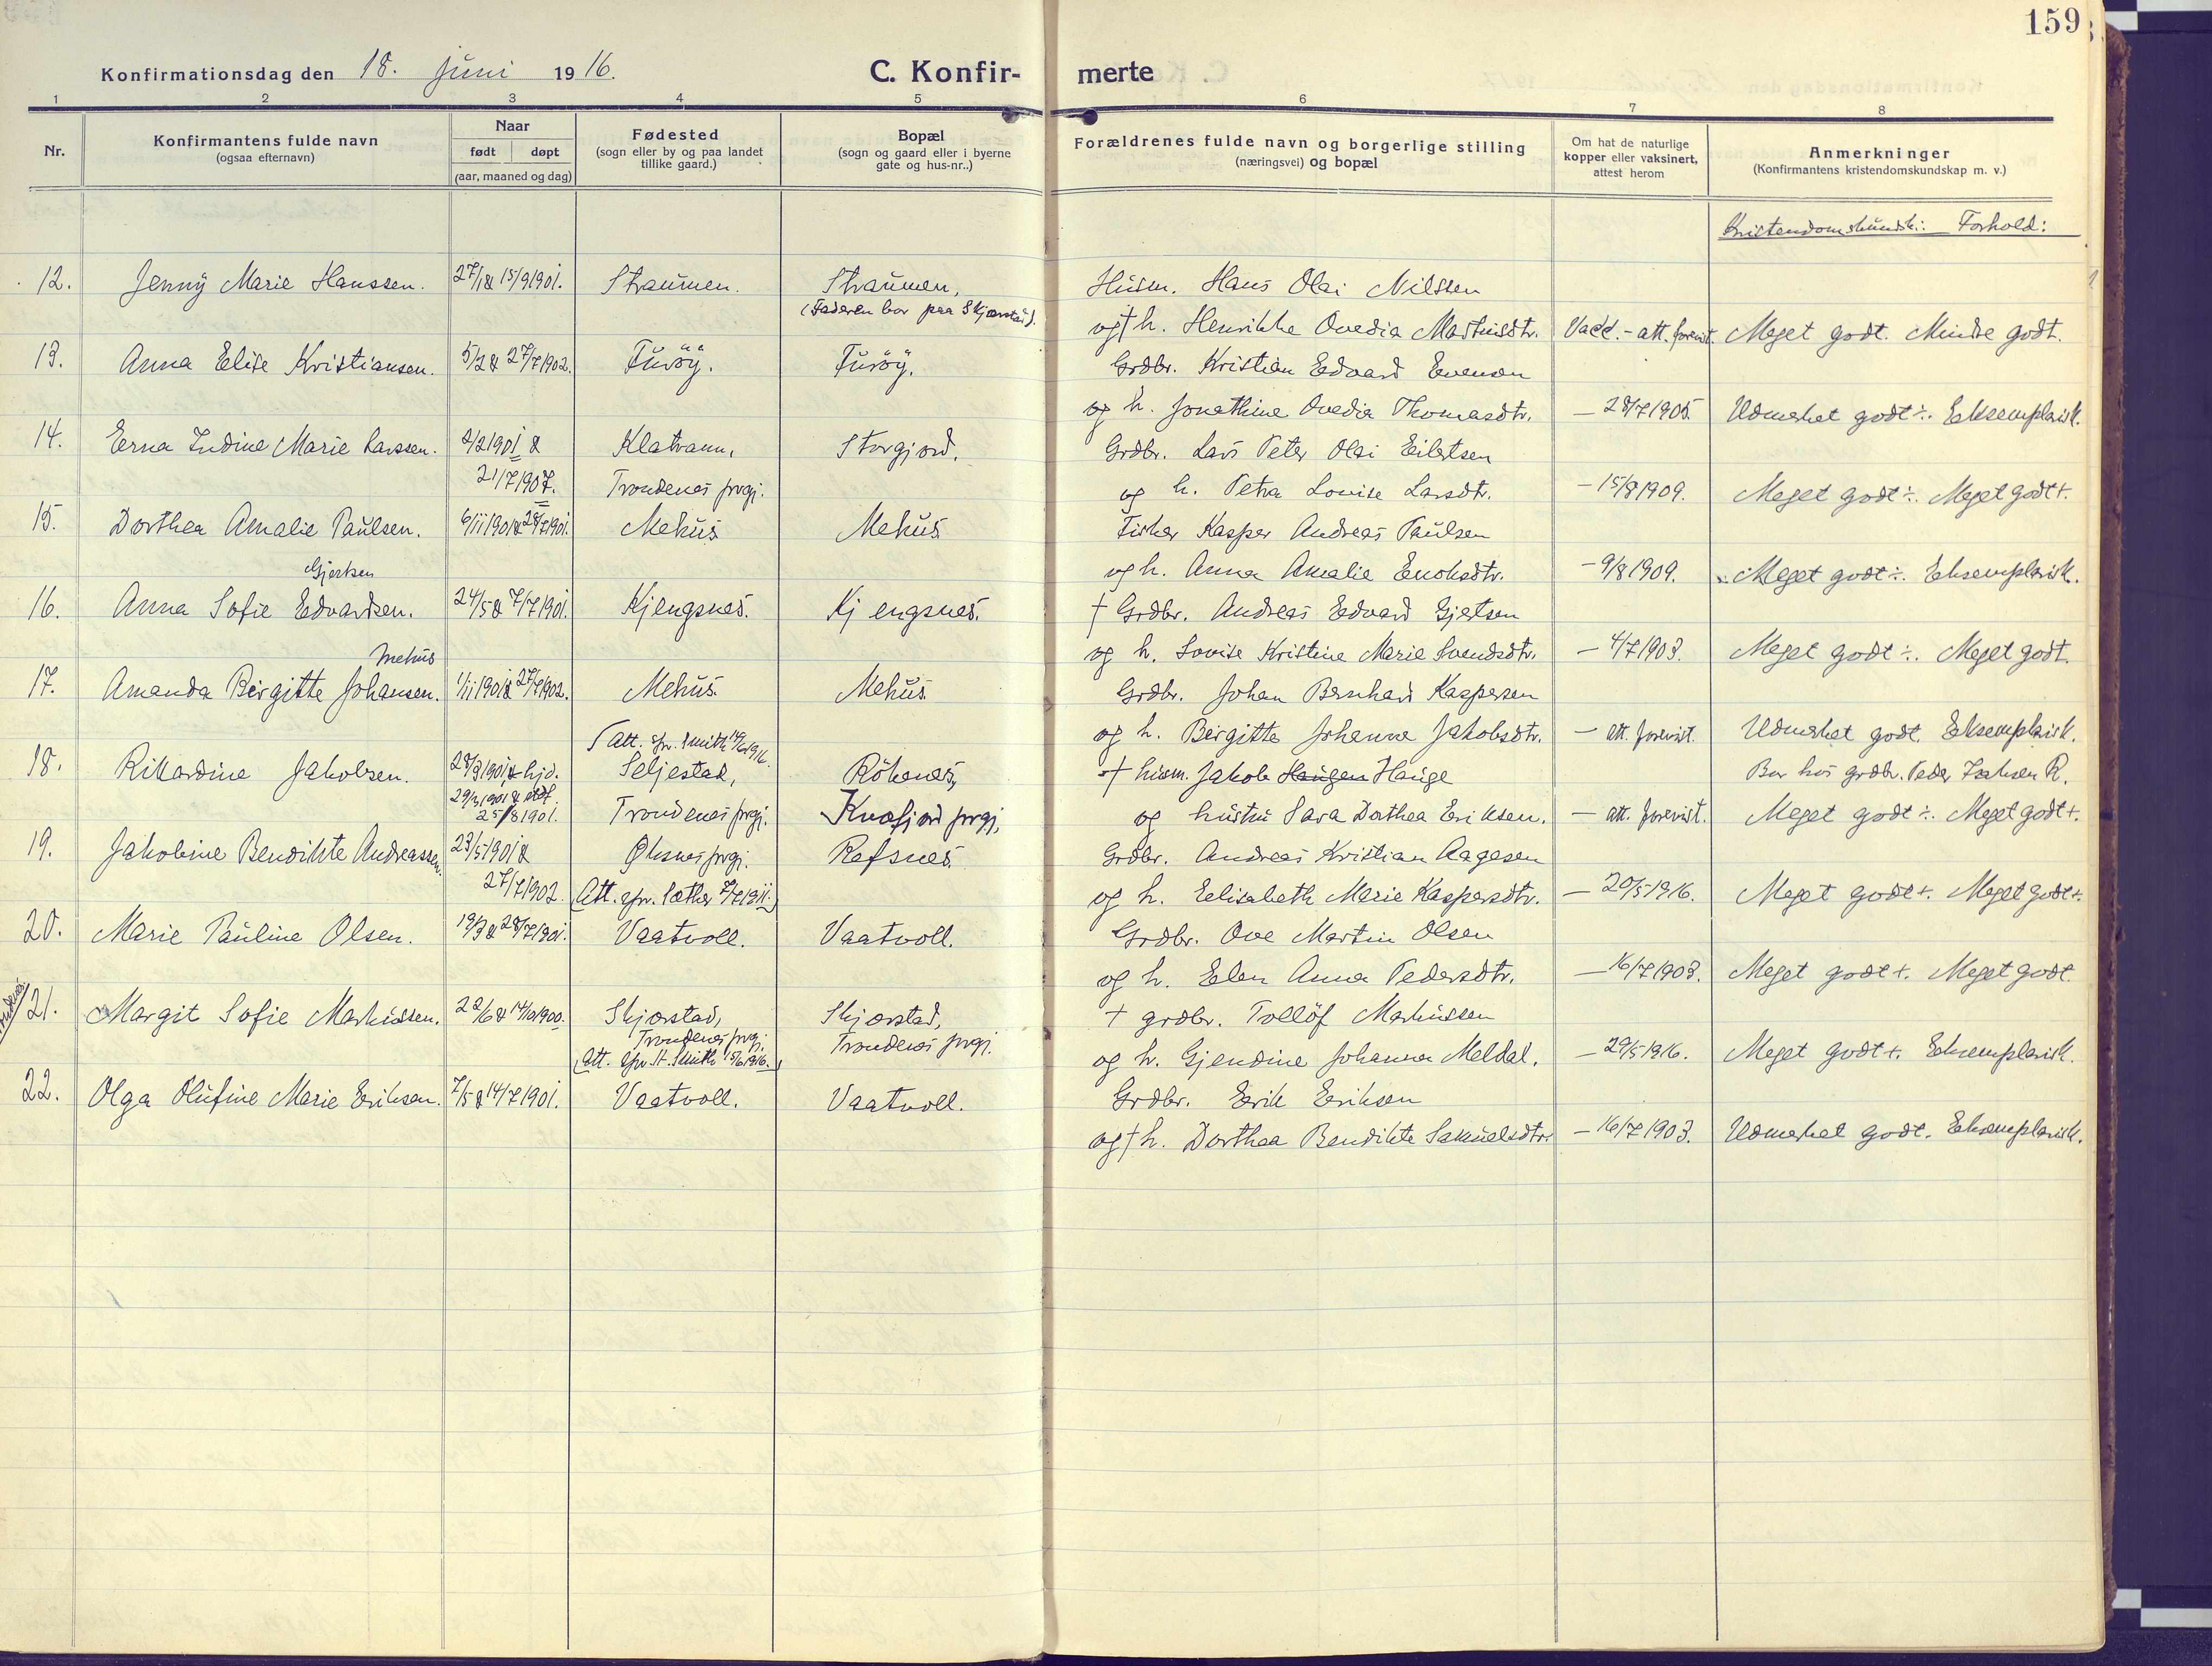 159
Konfirmationsdag den 18. juni 1916.
C. Konfir-merte
1 2 3 4 5 6 7 8
Nr.
Konfirmantens fulde navn
(ogsaa efternavn)
Naar
født døpt
(aar, maaned og dag)
Fødested
(sogn eller by og paa landet
tillike gaard.)
Bopæl
(sogn og gaard eller i byerne
gate og hus-nr..)
Forældrenes fulde navn og borgerlige stilling
(næringsvei) og bopæl
Om hat de naturlige
kopper eller vaksinert,
attest herom
Anmerkninger
(Konfirmantens kristendomskundskap m. v.)
Kristendomskundsk.: Forhold:
12. Jenny Marie Hanssen. 27/1 & 15/9 1901. Straumen. Straumen, Husm. Hans Olai Nilssen
(Faderen bor paa Skjærstad).
og † h. Henrikke Ovedia Martinsdtr. Vacc. - att. forevist. Meget godt. Mindre godt.
13. Anna Elise Kristiansen. 5/2 & 27/7 1902. Furöy. Furöy. Grdbr. Kristian Edvard Evensen
og h. Jonathine Ovedia Thomasdtr. — 28/7 1905. Udmerket godt ÷. Eksemplarisk.
14. Erna Indine Marie Larssen. 2/2 1901 & Klatrann, Storgjord. Grdbr. Lars Peter Olai Eilertsen
21/7 1907. Trondenes prgj.
og h. Petra Lovise Larsdtr. — 15/8 1909. Meget godt ÷. Meget godt +.
15. Dorthea Amalie Paulsen. 6/11 1901 & 28/7 1901. Mehus Mehus Fisker Kasper Andreas Paulsen
og h. Anna Amalie Enoksdtr. — 9/8 1909. Meget godt ÷. Eksemplarisk.
Gjertsen
16. Anna Sofie Edvardsen. 24/5 & 7/7 1901. Kjengsnes. Kjengsnes. † Grdbr. Andreas Edvard Gjertsen
og h. Lovise Kristine Marie Svendsdtr. — 4/7 1903. Meget godt ÷. Meget godt.
Mehus
17. Amanda Birgitte Johansen. 1/11 1901 & 27/7 1902. Mehus. Mehus. Grdbr. Johan Bernhard Kaspersen
og h. Birgitte Johanna Jakobsdtr. — att. forevist. Udmerket godt. Eksemplarisk.
(Att. spr. Smith 14/6 1916.
18. Rikardine Jakobsen. 28/3 1901 & hjd. Seljestad, Rökenes, † husm. Jakob Haugen Hauge Bor hos grdbr. Peder Isaksen R.
29/3 1901 & stdf. 25/8 1901. Trondenes prgj. Kvæfjord prgj.
og hustru Sara Dorthea Eriksen. — att. forevist. Meget godt ÷. Meget godt +.
19. Jakobine Bendikte Andreassen. 23/5 1901 & Øksnes prgj. Refsnes. Grdbr. Andreas Kristian Aagesen
27/7 1902. (Att. spr. Sæther 7/7 1911.)
og h. Elisabeth Marie Kaspersdtr. — 20/5 1916. Meget godt +. Meget godt +.
20. Marie Pauline Olsen. 19/3 & 28/7 1901. Vaatvoll. Vaatvoll. Grdbr. Ove Martin Olsen
og h. Elen Anna Pedersdtr. — 16/7 1903. Meget godt +. Meget godt
21. Margit Sofie Markussen. 22/6 & 14/10 1900. Skjærstad, Skjærstad, † grdbr. Tollöf Markussen
Trondenes prgj. Trondenes prgj.
(Att. spr. A. Smith 15/6 1916.)
og h. Gjendine Johanna Meldal. — 29/5 1916. Meget godt +. Eksemplarisk.
22. Olga Olufine Marie Eriksen. 7/5 & 14/7 1901. Vaatvoll. Vaatvoll. Grdbr. Erik Eriksen
og † h. Dorthea Bendikte Samuelsdtr. — 16/7 1903. Udmerket godt. Eksemplarisk.